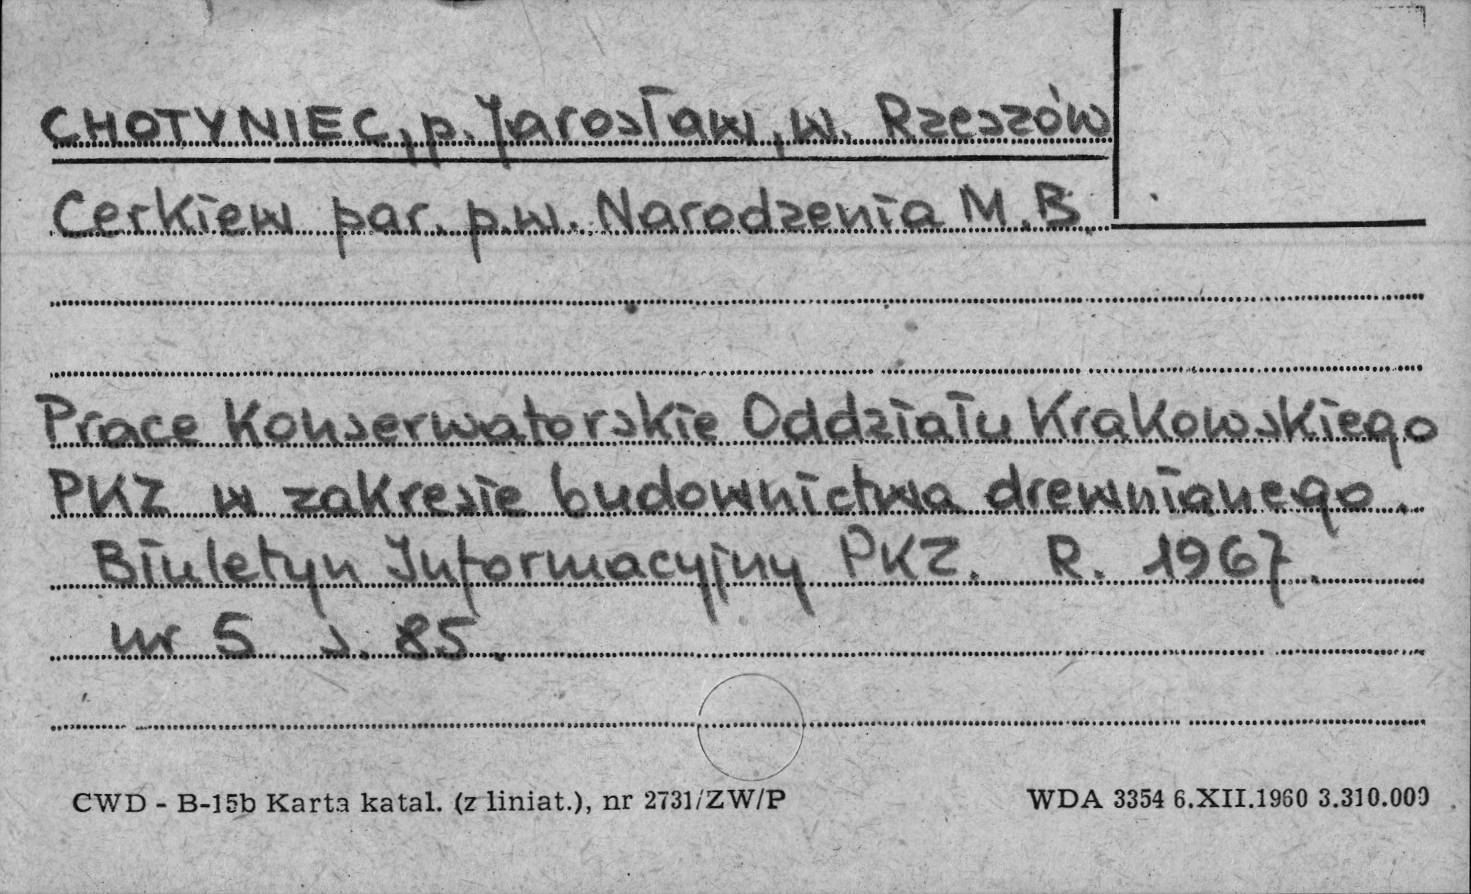 CHOTYNIEC, p. Jarosław, w. Rzeszów
Cerkiew par. p.w. Narodzenia M.B.
Prace Konserwatorskie Oddziału Krakowskiego
PKZ w zakresie budownictwa drewnianego.
Biuletyn Informacyjny PKZ. R. 1967.
nr 5 s. 85.
CWD - B-15b Karta katal. (z liniat.), nr 2731/ZW/P
WDA 3354 6.XII.1960 3.310.000